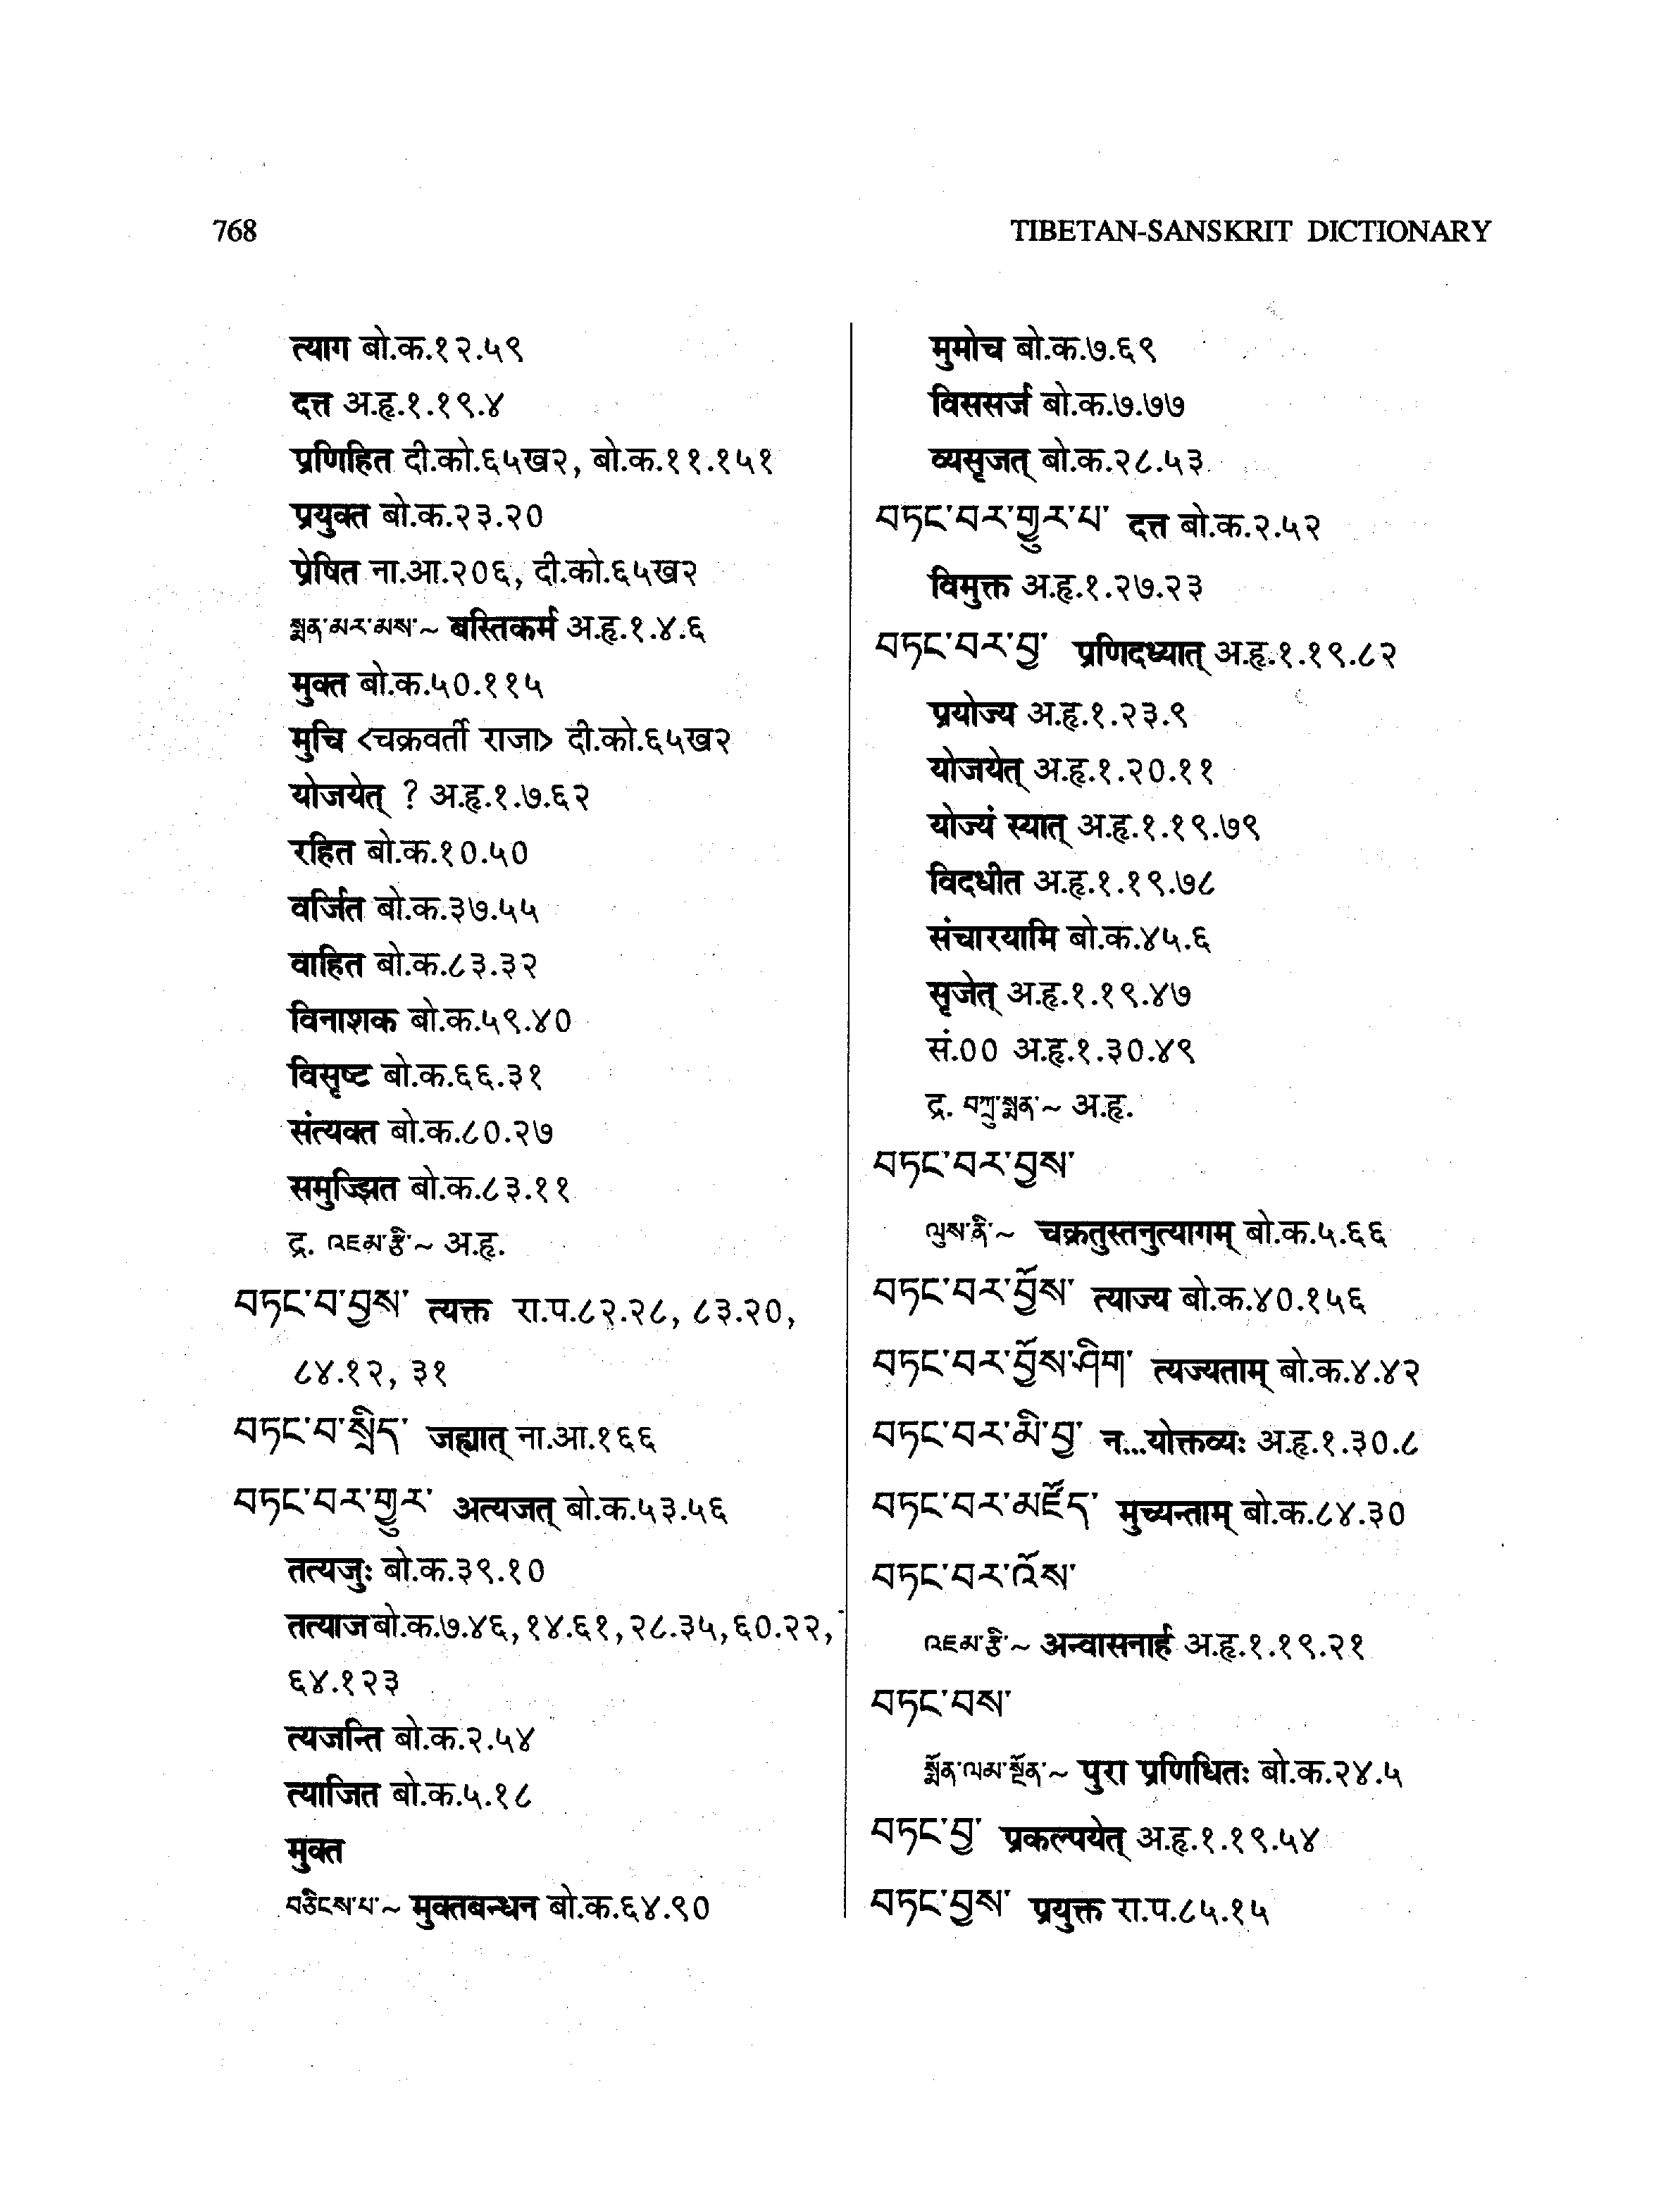 768
TIBETAN-SANSKRIT DICTIONARY
त्याग बो.क.१२.५९
दत्त अ.हृ.१.१९.४
प्रणिहित दी.को.६५ख२, बो.क.११.१५१
प्रयुक्त बो.क.२३.२०
प्रेषित ना.आ.२०६, दी.को.६५ख२
སྨན་མར་མས་~ बस्तिकर्म अ.हृ.१.४.६
मुक्त बो.क.५०.११५
मुचि <चक्रवर्ती राजा> दी.को.६५ख२
योजयेत् ? अ.हृ.१.७.६२
रहित बो.क.१०.५०
वर्जित बो.क.३७.५५
वाहित बो.क.८३.३२
विनाशक बो.क.५९.४०
विसृष्ट बो.क.६६.३१
संत्यक्त बो.क.८०.२७
समुज्झित बो.क.८३.११
द्र. འཇམ་རྩི་~ अ.हृ.
བཏང་བ་བྱས་ त्यक्त रा.प.८२.२८, ८३.२०,
८४.१२, ३१
བཏང་བ་སྲིད་ जह्यात् ना.आ.१६६
བཏང་བར་གྱུར་ अत्यजत् बो.क.५३.५६
तत्यजुः बो.क.३९.१०
तत्याज बो.क.७.४६, १४.६१, २८.३५, ६०.२२,
६४.१२३
त्यजन्ति बो.क.२.५४
त्याजित बो.क.५.१८
मुक्त
བཅིངས་པ་~ मुक्तबन्धन बो.क.६४.९०
मुमोच बो.क.७.६९
विससर्ज बो.क.७.७७
व्यसृजत् बो.क.२८.५३
བཏང་བར་གྱུར་པ་ दत्त बो.क.२.५२
विमुक्त अ.हृ.१.२७.२३
བཏང་བར་བྱ་ प्रणिदध्यात् अ.हृ.१.१९.८२
प्रयोज्य अ.हृ.१.२३.९
योजयेत् अ.हृ.१.२०.११
योज्यं स्यात् अ.हृ.१.१९.७९
विदधीत अ.हृ.१.१९.७८
संचारयामि बो.क.४५.६
सृजेत् अ.हृ.१.१९.४७
सं.०० अ.हृ.१.३०.४९
द्र. བཀྲུ་སྨན་~ अ.हृ.
བཏང་བར་བྱས་
ལུས་ནི་~ चक्रतुस्तनुत्यागम् बो.क.५.६६
བཏང་བར་བྱོས་ त्याज्य बो.क.४०.१५६
བཏང་བར་བྱོས་ཤིག་ त्यज्यताम् बो.क.४.४२
བཏང་བར་མི་བྱ་ न...योक्तव्यः अ.हृ.१.३०.८
བཏང་བར་མཛོད་ मुच्यन्ताम् बो.क.८४.३०
བཏང་བར་འོས་
འཇམ་རྩི་~ अन्वासनार्ह अ.हृ.१.१९.२१
བཏང་བས་
སྨོན་ལམ་སྔོན་~ पुरा प्रणिधितः बो.क.२४.५
བཏང་བྱ་ प्रकल्पयेत् अ.हृ.१.१९.५४
བཏང་བྱས་ प्रयुक्त रा.प.८५.१५